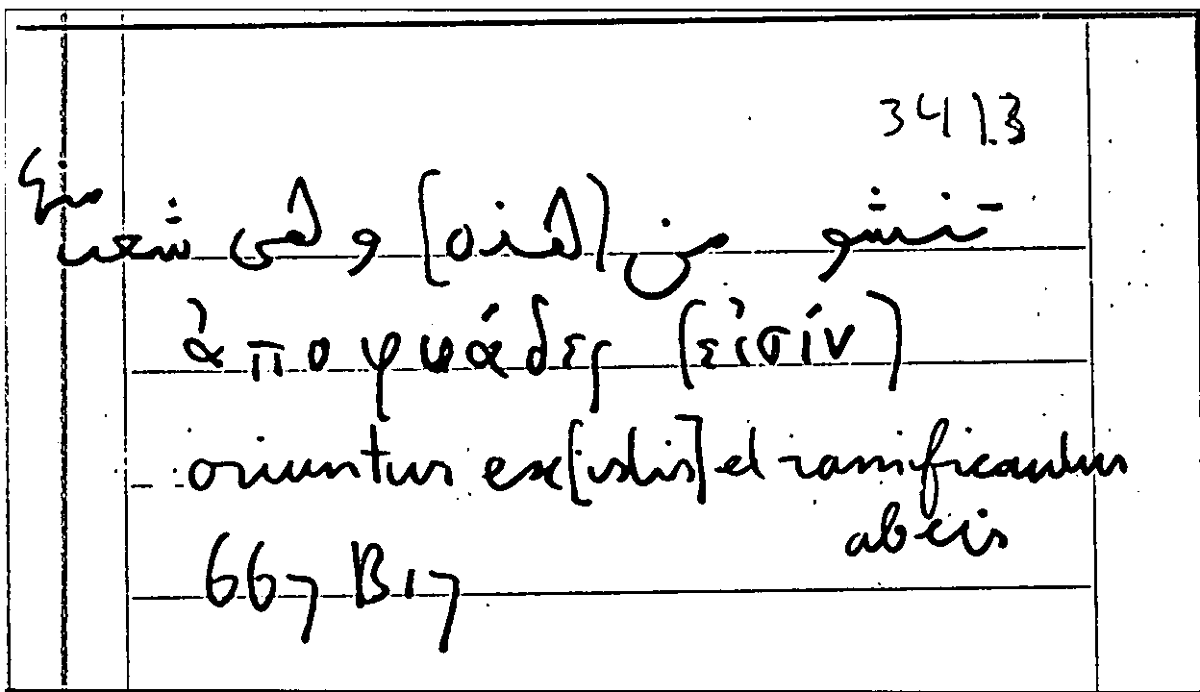 34 1.3
تنشو من (هذه) و هى شعب
ἀποφυάδες (εἰσίν)
oriuntur ex [istis] et ramificantur
ab eis
667 B 17